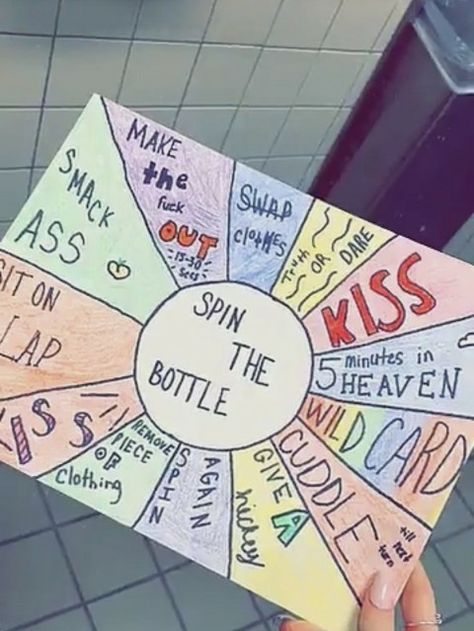 SPIN
THE
BOTTLE
MAKE
the
fuck
OUT
-15-30-
secs
SWAP
clothes
Truth
OR
DARE
KISS
5 minutes in
HEAVEN
WILD CARD
CUDDLE
till next
turn
GIVE
A
hickey
SPIN
AGAIN
REMOVE
PIECE
OF
clothing
KISS
SIT ON
LAP
SMACK
ASS